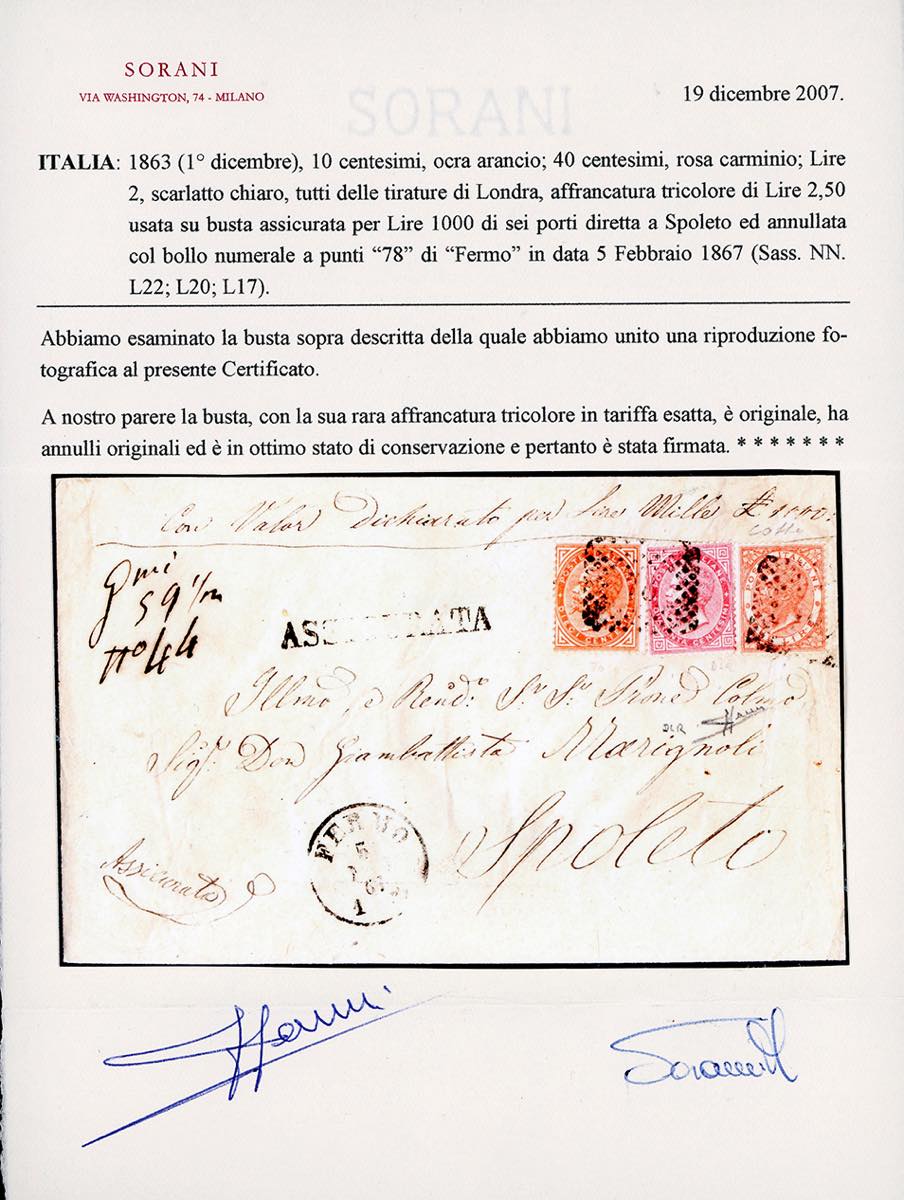 SORANI
VIA WASHINGTON, 74 - MILANO
SORANI
19 dicembre 2007.
ITALIA: 1863 (1° dicembre), 10 centesimi, ocra arancio; 40 centesimi, rosa carminio; Lire
2, scarlatto chiaro, tutti delle tirature di Londra, affrancatura tricolore di Lire 2,50
usata su busta assicurata per Lire 1000 di sei porti diretta a Spoleto ed annullata
col bollo numerale a punti “78” di “Fermo” in data 5 Febbraio 1867 (Sass. NN.
L22; L20; L17).
Abbiamo esaminato la busta sopra descritta della quale abbiamo unito una riproduzione fo-
tografica al presente Certificato.
A nostro parere la busta, con la sua rara affrancatura tricolore in tariffa esatta, è originale, ha
annulli originali ed è in ottimo stato di conservazione e pertanto è stata firmata. * * * * * * *
Con Valor Dichiarato per Lire Mille £ 1000.
Gmi
59 1/m
N° 44
ASSICURATA
Illmo e Rendo: Sr Sr Prone Colmo
Sigr. Don Giambattista Marignoli
Spoleto
FERMO
5
67
1
Assicurata